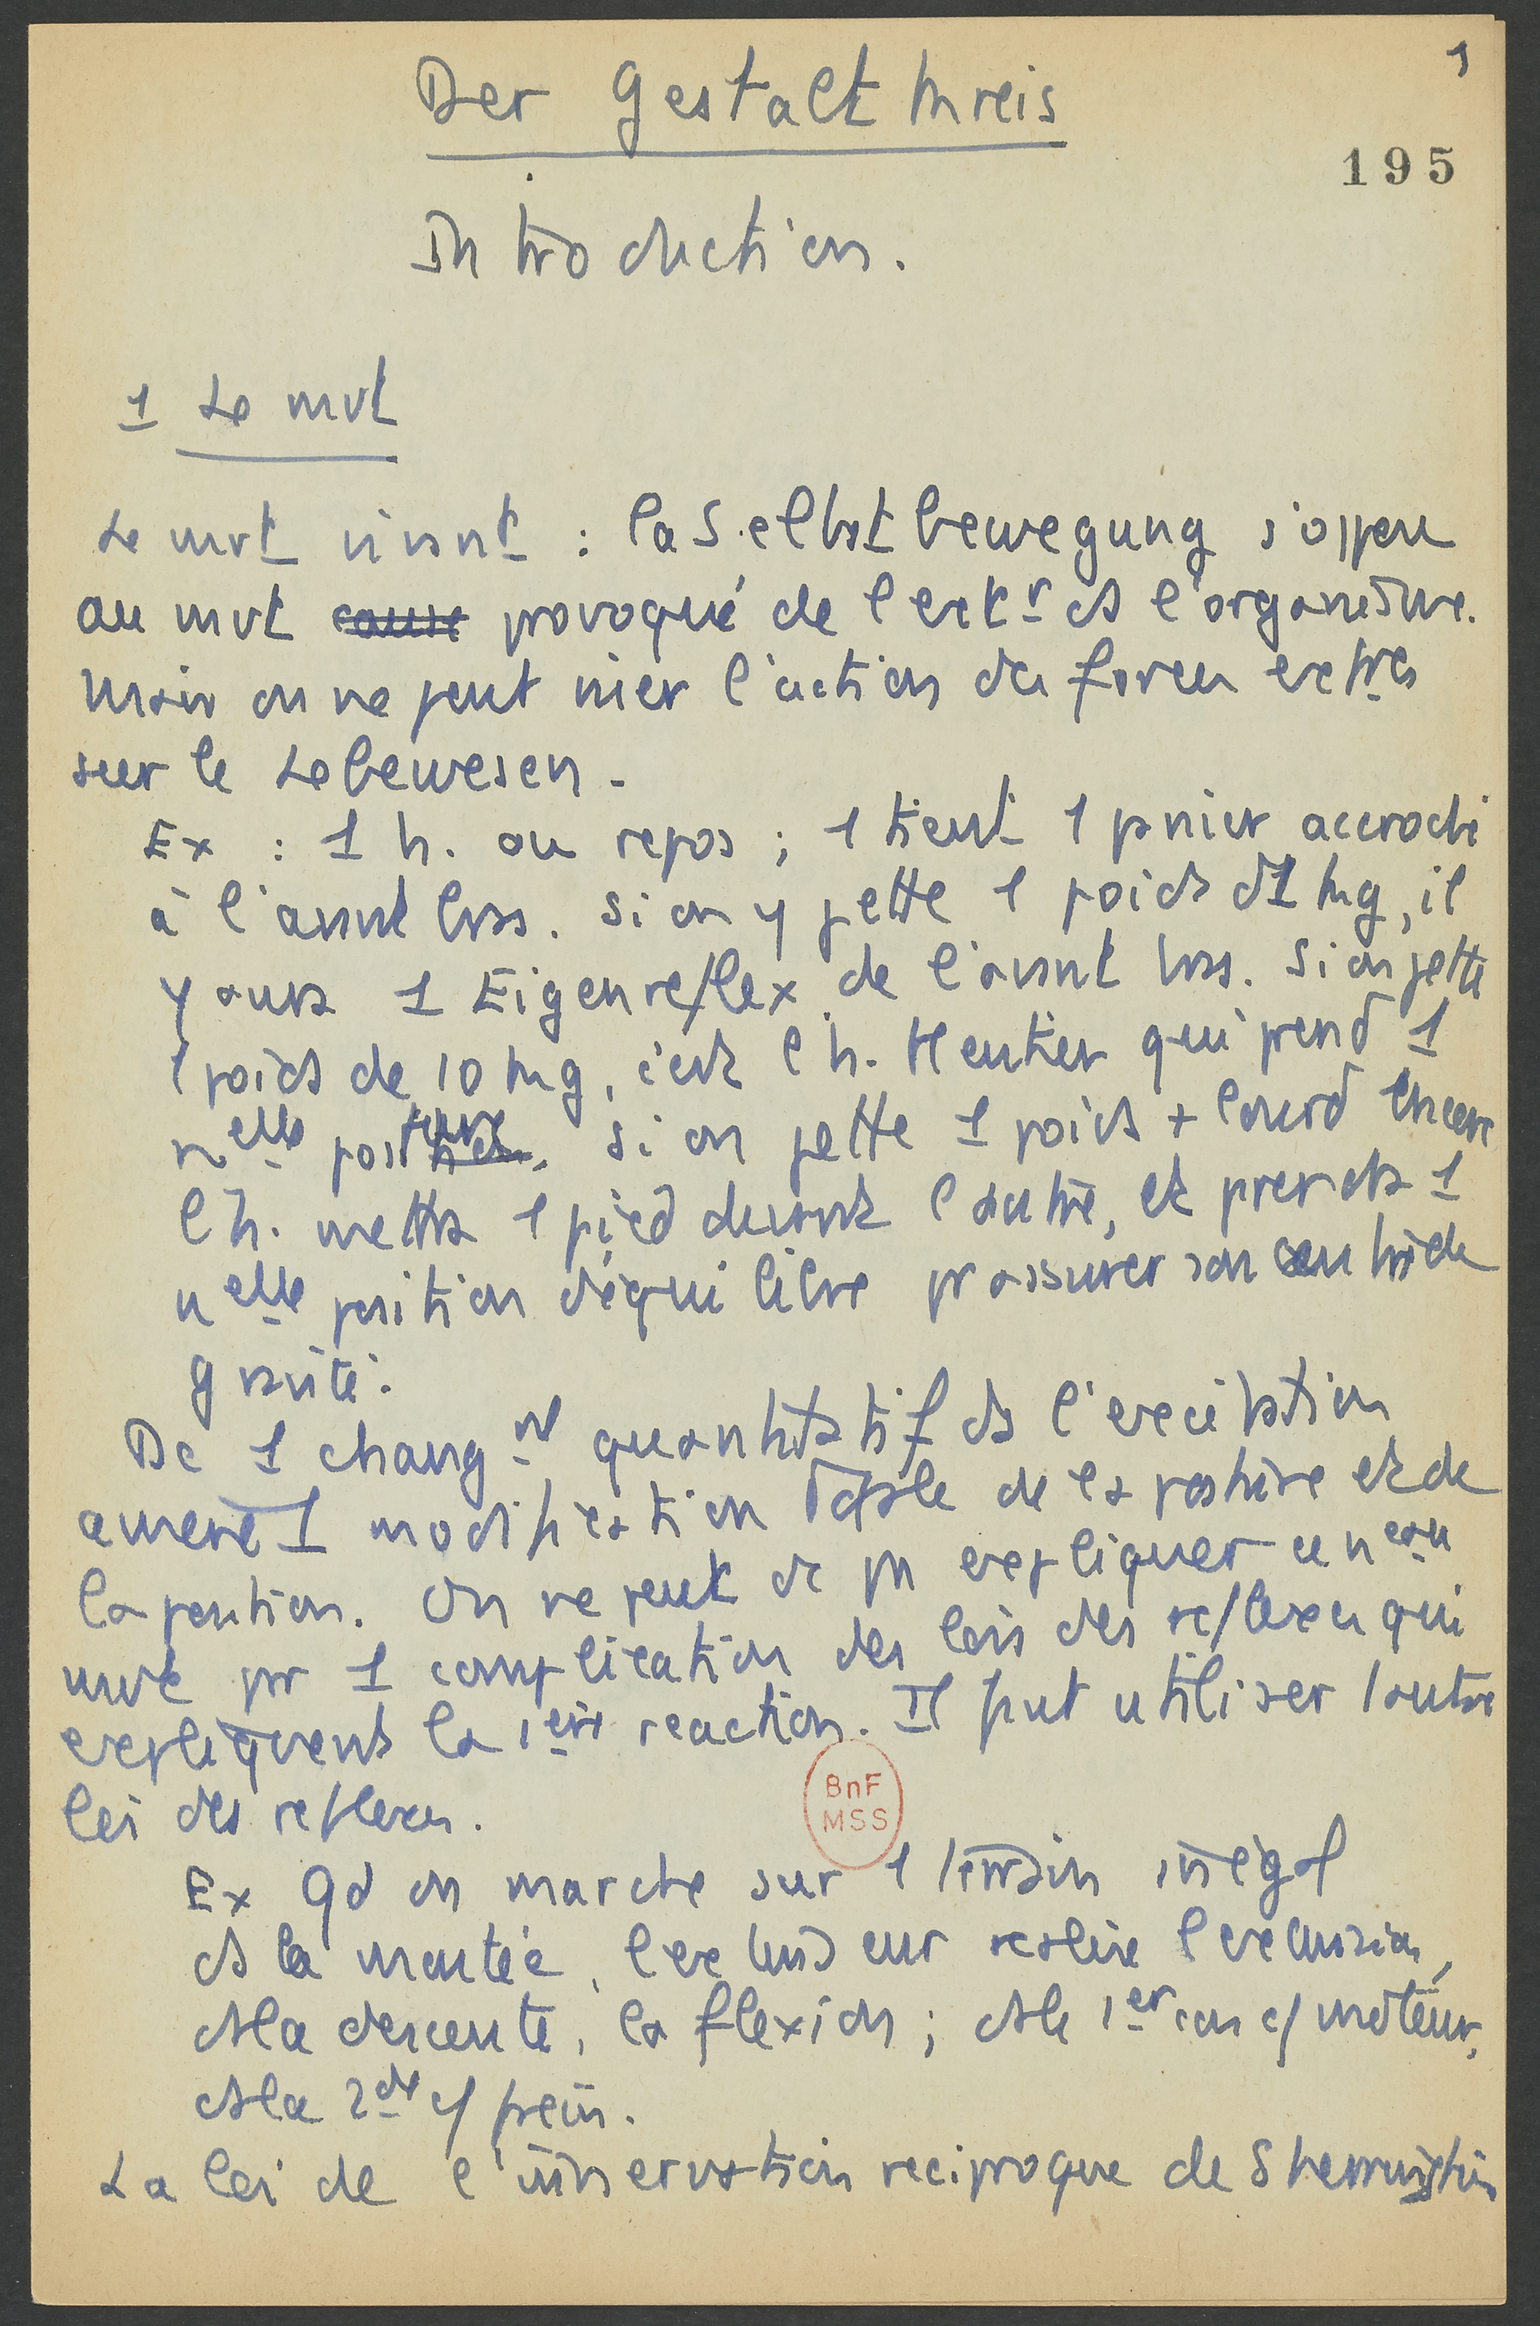 1
Der Gestaltkreis
195
Introduction.
1 Le mvt
Le mvt vivant : la Selbstbewegung s'oppose
au mvt cause provoqué de l'extr ds l'organisme.
Mais on ne peut nier l'action des forces extres
sur le Lebewesen.
Ex : 1 h. au repos ; 1 tient 1 panier accroché
à l'avant bras. Si on y jette 1 poids d'1 kg, il
y aura 1 Eigenreflex de l'avant bras. Si on jette
1 poids de 10 kg, c'est l'h. tt entier qui prend 1
nelle posture. Si on jette 1 poids + lourd encore
l'h. mettra 1 pied devant l'autre, et prendra 1
nelle position d'équilibre pr assurer son centre de
gravité.
Dc 1 changnt quantitatif ds l'excitation
amène 1 modification totale de la posture et de
la position. On ne peut dc pas expliquer ce neau
mvt par 1 complication des lois des réflexes qui
expliquent la 1ère réaction. Il faut utiliser 1 autre
loi des réflexes.
Ex Qd on marche sur 1 terrain inégal
ds la montée, l'extenseur réalise l'extension,
ds la descente, la flexion ; ds le 1er cas c/ moteur,
ds la 2de c/ frein.
La loi de l'innervation réciproque de Sherrington
BnF
MSS